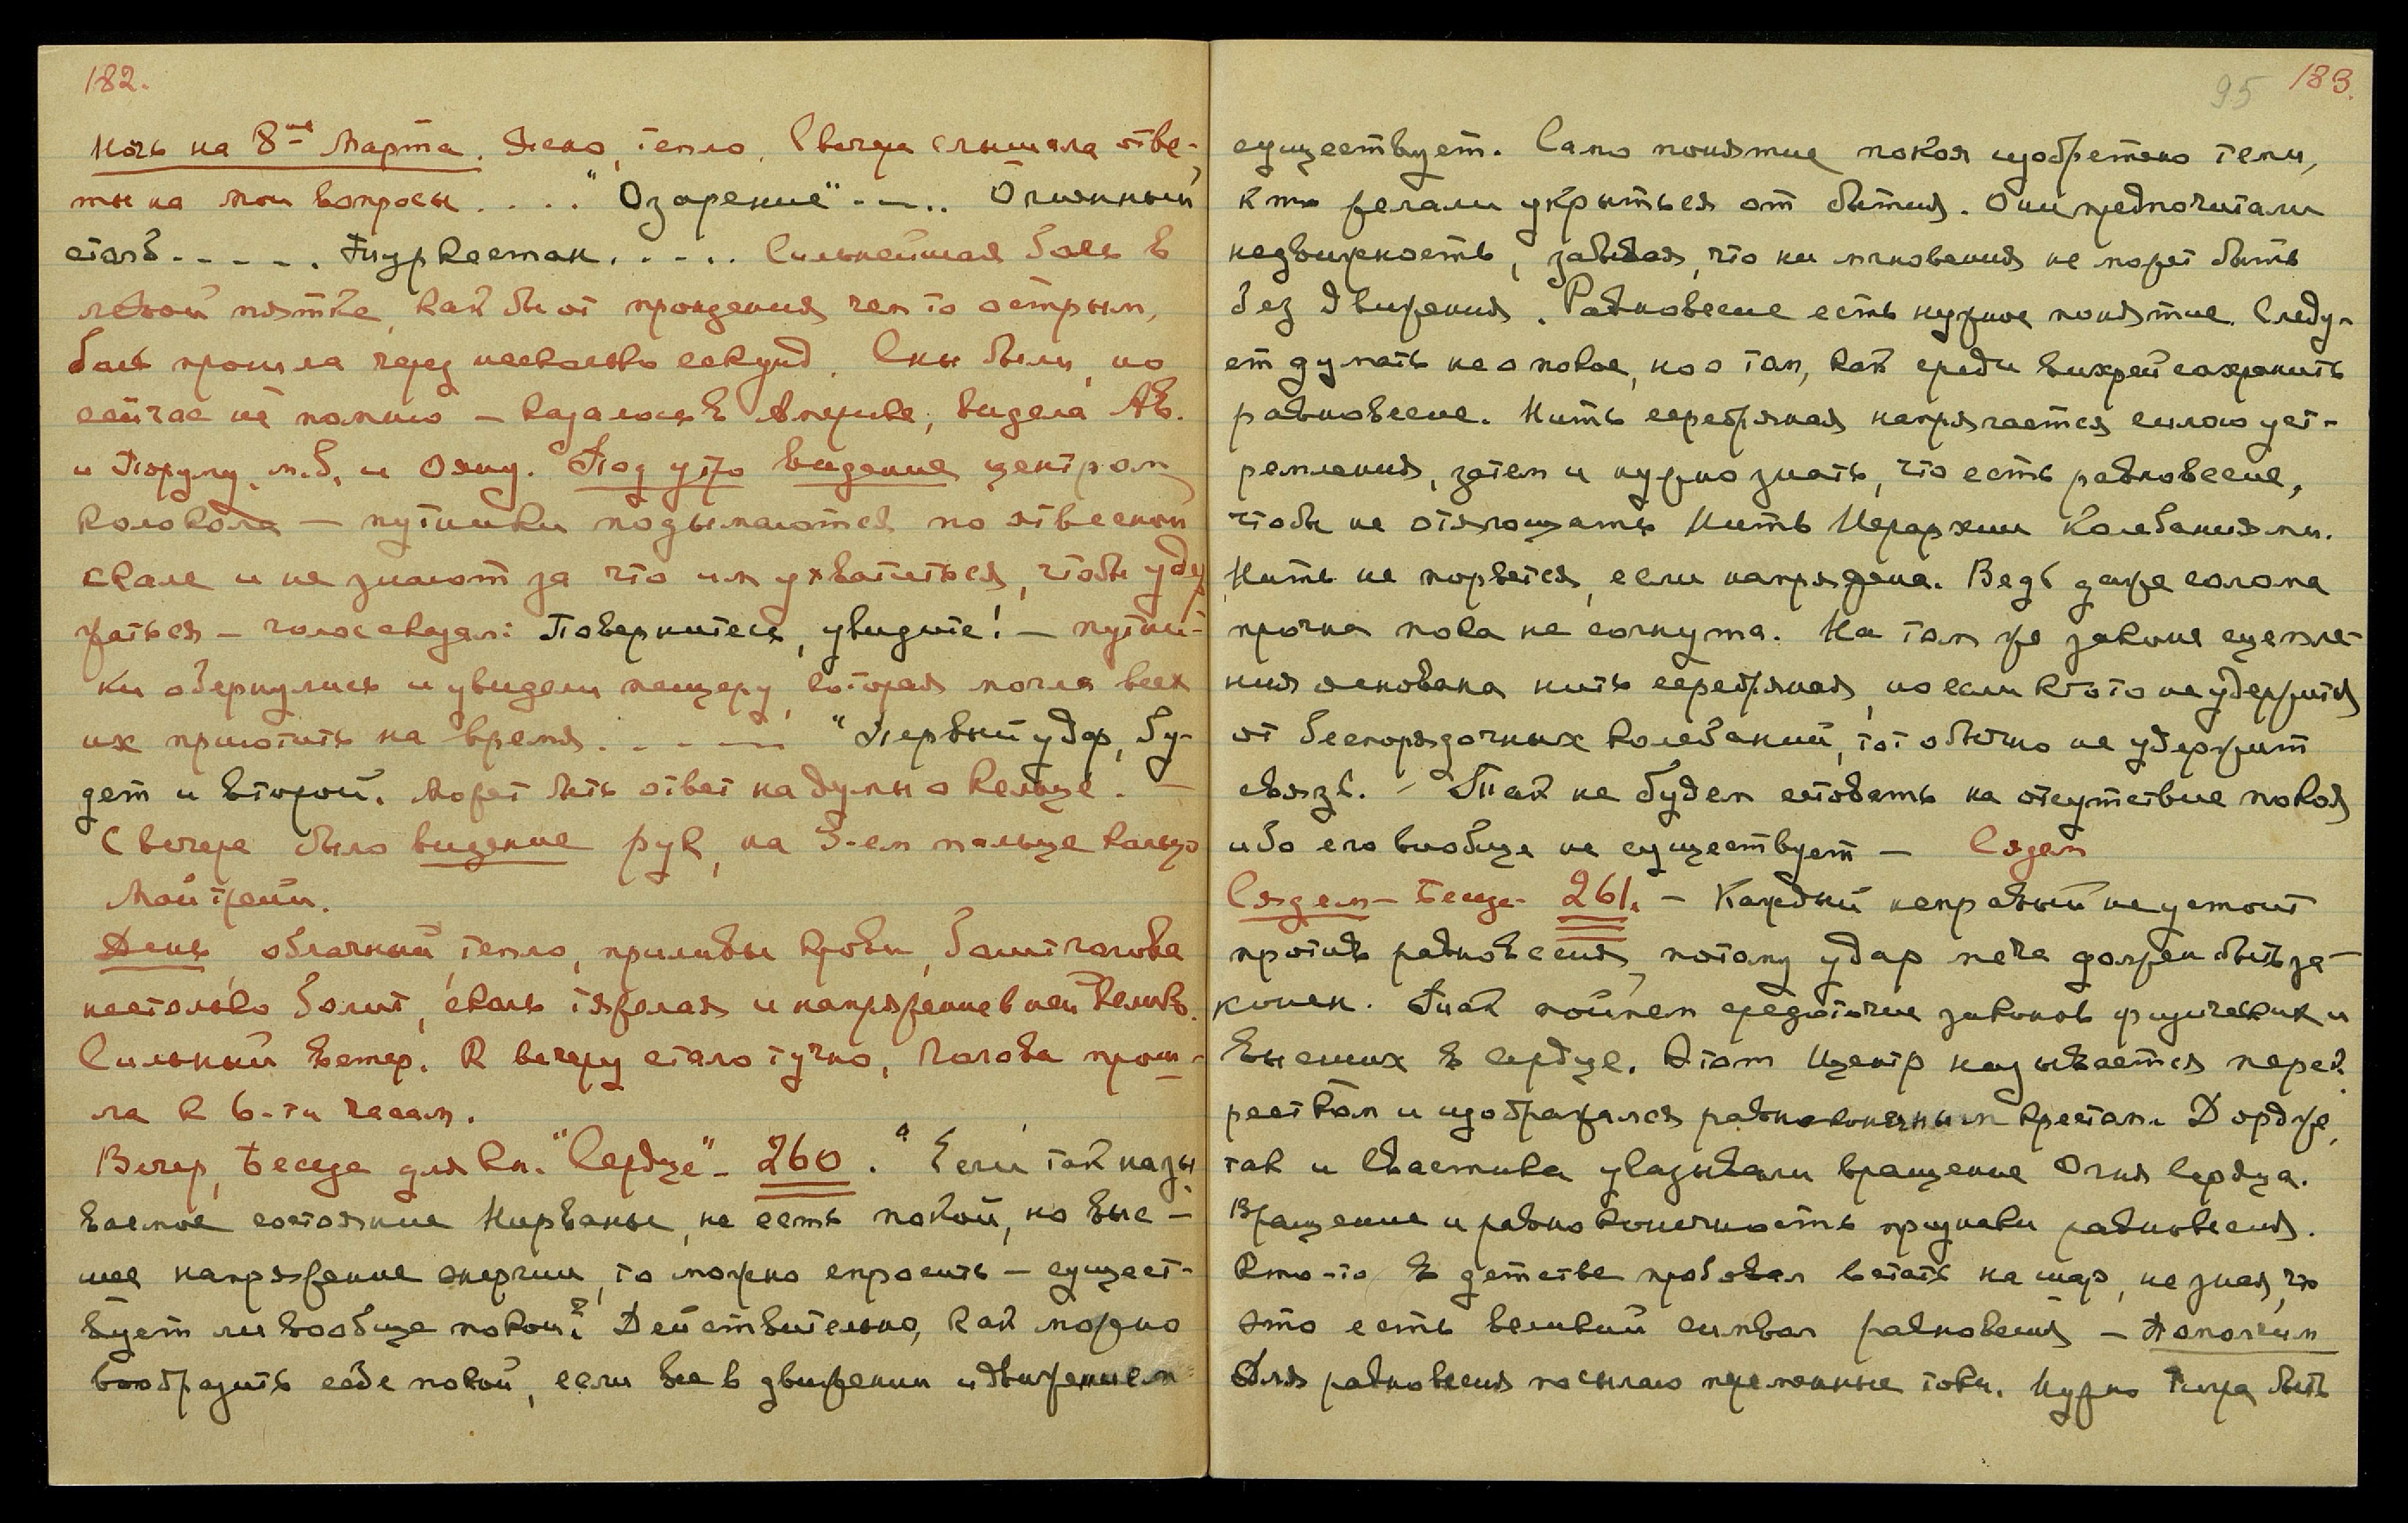 182.
Ночь на 8-ое Марта. Ясно, тепло. С вечера слышала отве-
ты на мои вопросы . . . . "Озарение" . — . . Огненный
столб - - - - . Туркестан . . - . . Сильнейшая боль в
левой пятке, как бы от прохождения чем то острым,
боль прошла через несколько секунд. Сны были, но
сейчас не помню — казалось в Америке, видела Ав.
и Поруму, м.б. и Ояну. Под утро видение центром
колокола — путники подымаются по отвесной
скале и не знают за что им ухватиться, чтобы удер
жаться — голос сказал: Повернитесь, увидите! — путни-
ки обернулись и увидели пещеру, которая могла всех
их приютить на время . - - — "Первый удар, бу-
дет и второй. Может быть ответ на думы о Кельце. —
С вечера было видение рук, на 3-ем пальце кольцо
Майтрейи.
День облачный, тепло, приливы крови, болит голова
не столько болит, сколь тяжелая и напряжение в ней велико.
Сильный ветер. К вечеру стало тучно, голова прош-
ла к 6-ти часам.
Вечер, Беседа для кн. "Сердце" - 260. " Если так назы
ваемое состояние Нирваны, не есть покой, но выс-
шее напряжение энергии, то можно спросить — сущест-
вует ли вообще покой? Действительно, как можно
вообразить себе покой, если все в движении и движением
95 183.
существует. Само понятие покоя изобретено теми,
кто желали укрыться от бытия. Они предпочитали
недвижность, забывая, что ни мгновения не может быть
без движения. Равновесие есть нужное понятие. Следу-
ет думать не о покое, но о том, как среди вихрей сохранить
равновесие. Нить серебряная напрягается силою уст-
ремления, затем и нужно знать, что есть равновесие,
чтобы не отягощать Нить Иерархии колебаниями.
Нить не порвется, если напряжена. Ведь даже солома
прочна пока не согнута. На том же законе сцепле-
ния основана нить серебряная, но если кто то не удержится
от беспорядочных колебаний, тот обычно не удержит
связь. - Так не будем сетовать на отсутствие покоя
ибо его вообще не существует — Сядем
Сядем — Беседа - 261. - Каждый неправый не устоит
против равновесия, потому удар меча должен быть за-
конен. Так поймем средоточие законов физических и
высших в сердце. Этот Центр называется перек
рестком и изображался равноконечным крестом. Дордже,
так и Свастика указывали вращение Огня Сердца.
Вращение и равноконечность признаки равновесия.
Кто-то в детстве пробовал встать на шар, не зная, что
это есть великий символ равновесия — Помолчим
Для равновесия посылаю пременные токи. Нужно быть